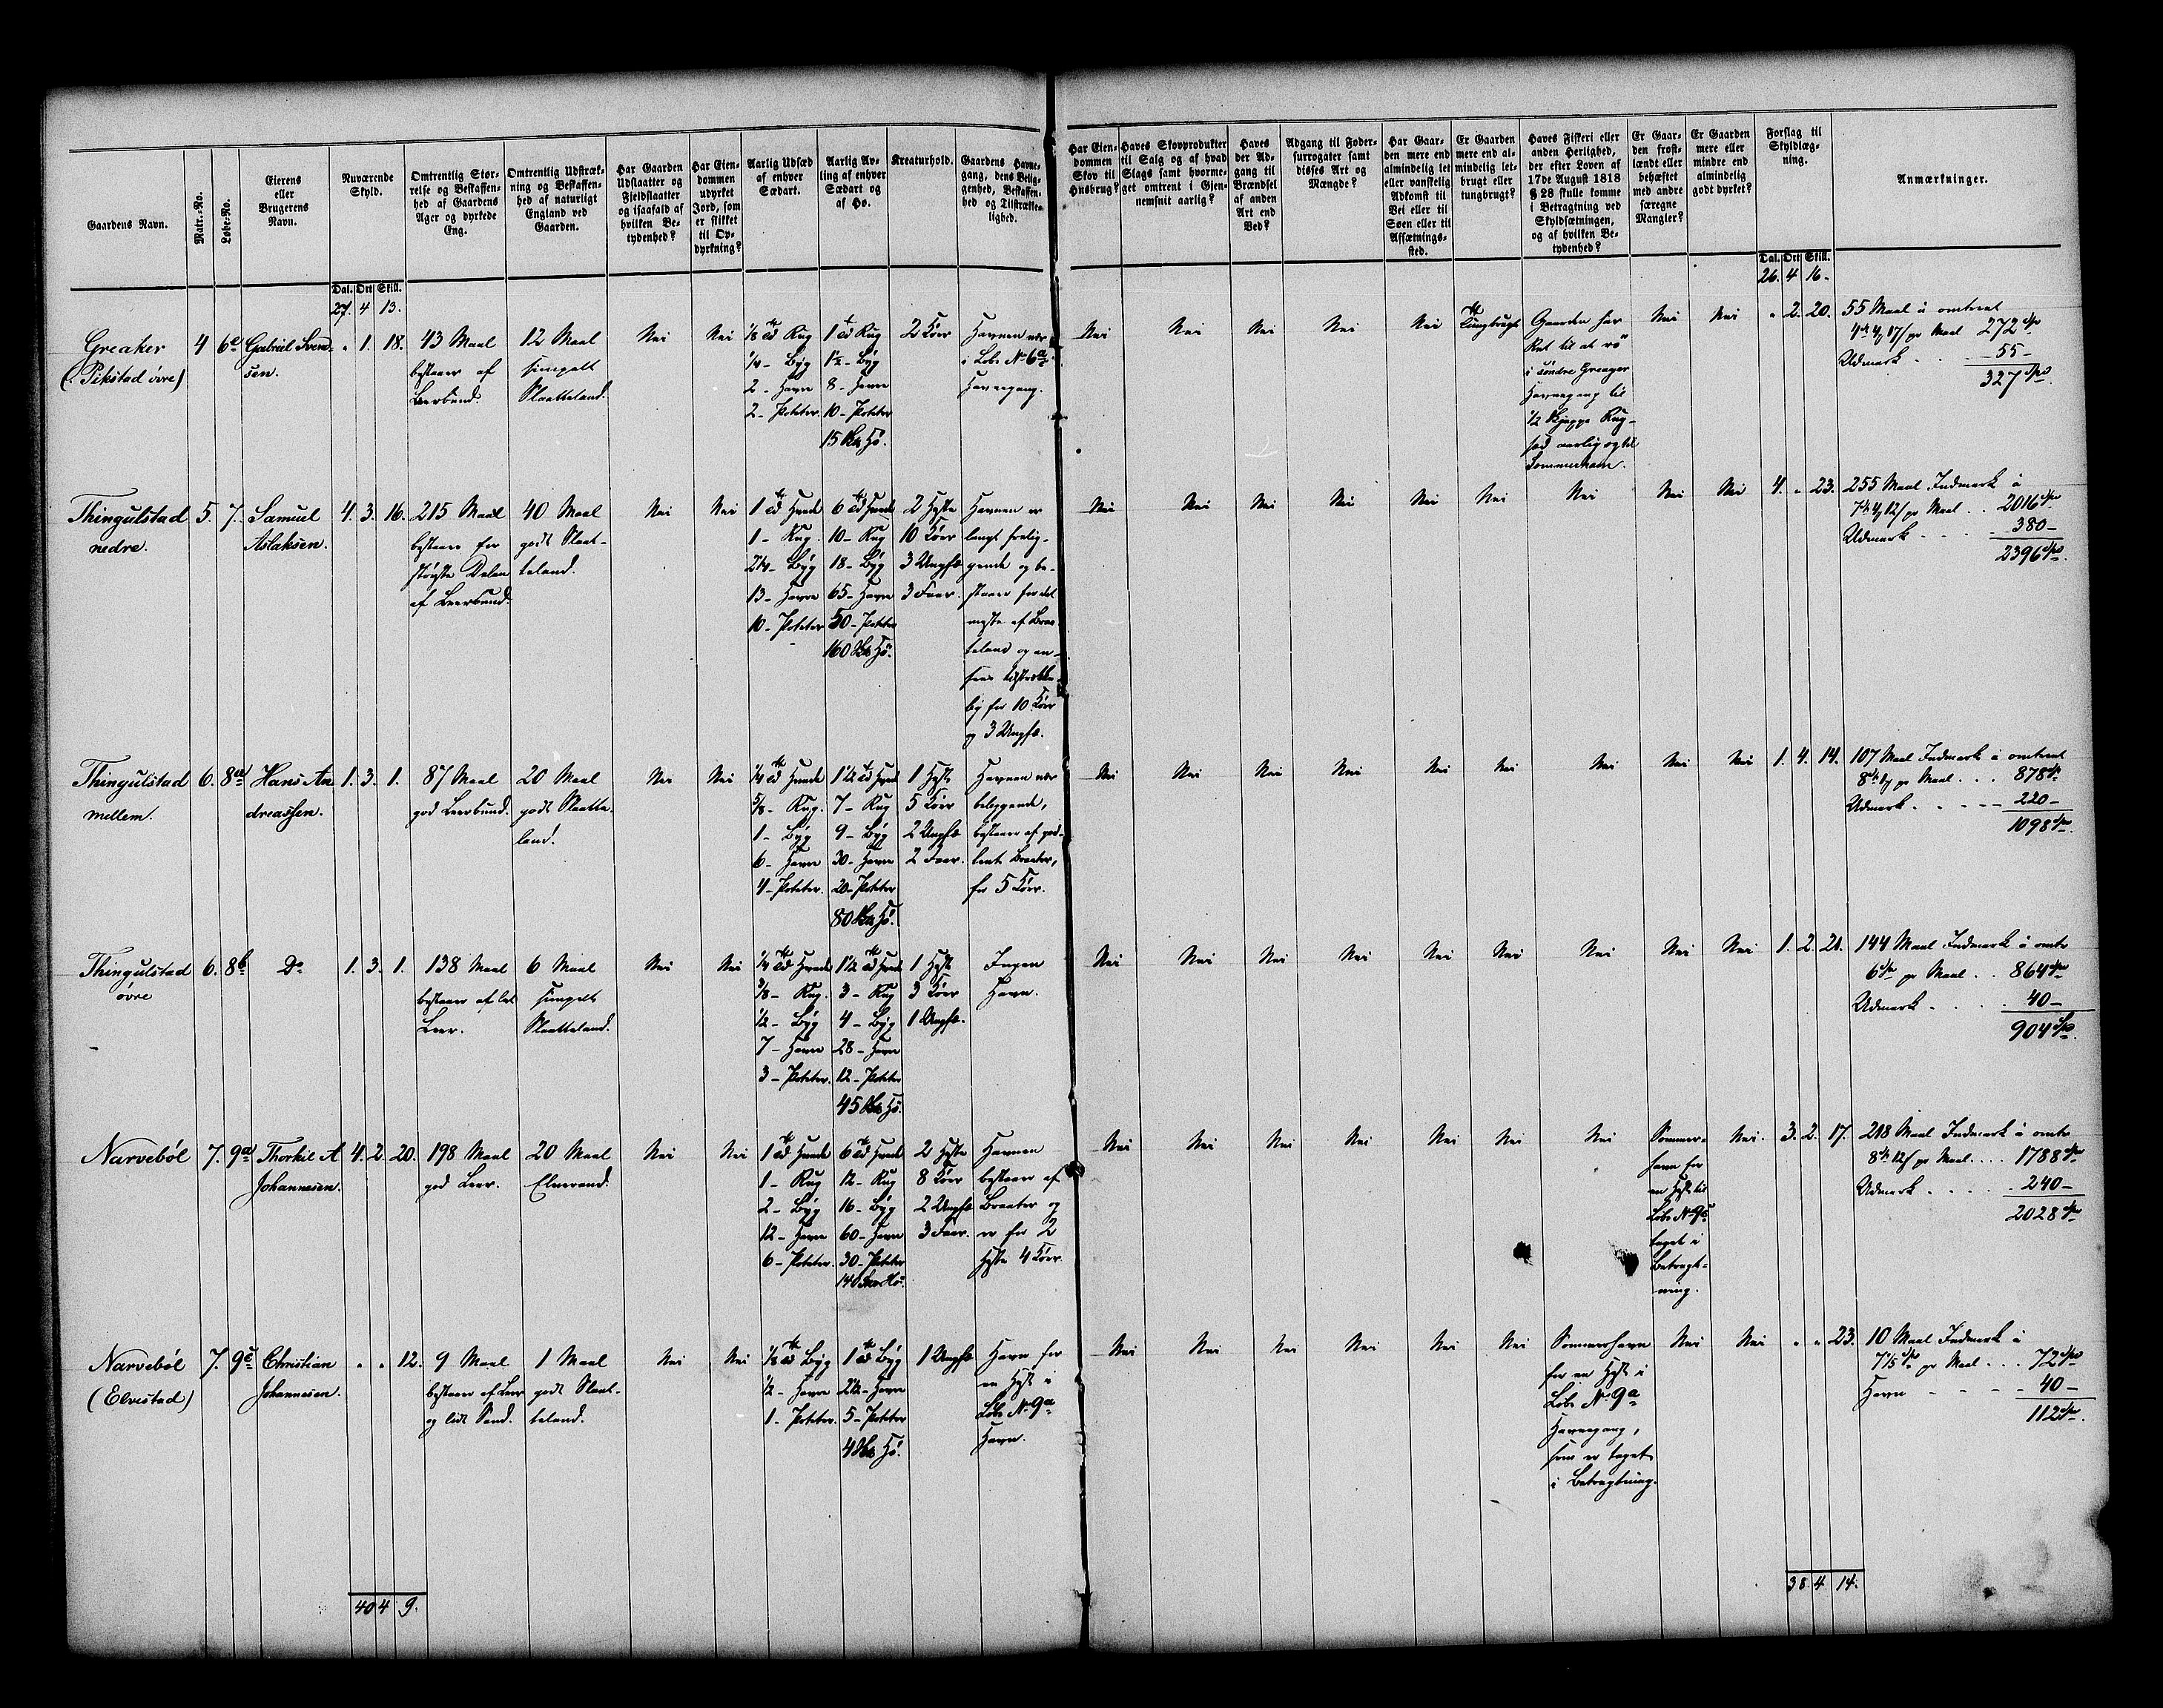 Gaardens Navn.
Matr.-No.
Løbe-No.
Eierens
eller
Brugerens
Navn.
Nuværende
Skyld.
Omtrentlig Stør-
relse og Beskaffen-
hed af Gaardens
Ager og dyrkede
Eng.
Omtrentlig Udstræk-
ning og Beskaffen-
hed af naturligt
England ved
Gaarden.
Har Gaarden
Udslaatter og
Fjeldslaatter
og isaafald af
hvilken Be-
tydenhed?
Har Eien-
dommen
udyrket
Jord, som
er skikket
til Op-
dyrkning?
Aarlig Udsæd
af enhver
Sædart.
Aarlig Av-
ling af enhver
Sædart og
af Hø.
Kreaturhold.
Gaardens Havne-
gang, dens Belig-
genhed, Beskaffen-
hed og Tilstrække-
lighed.
Har Eien-
dommen
Skov til
Husbrug?
Haves Skovprodukter
til Salg og af hvad
Slags samt hvorme-
get omtrent i Gjen-
nemsnit aarlig?
Haves
der Ad-
gang til
Brændsel
af anden
Art end
Ved?
Adgang til Foder-
surrogater samt
disses Art og
Mængde?
Har Gaar-
den mere end
almindelig let
eller vanskelig
Adkomst til
Vei eller til
Søen eller til
Afsætnings-
sted.
Er Gaarden
mere end al-
mindelig let-
brugt eller
tungbrugt?
Haves Fiskeri eller
anden Herlighed,
der efter Loven af
17de August 1818
§ 28 skulle komme
i Betragtning ved
Skyldsætningen,
og af hvilken Be-
tydenhed?
Er Gaar-
den frost-
lændt eller
behæftet
med andre
særegne
Mangler?
Er Gaarden
mere eller
mindre end
almindelig
godt dyrket?
Forslag til
Skyldlæg-
ning.
Anmærkninger.
Dal. Ort Skill.
27. 4 13.
Dal. Ort Skill.
26. 4 16.
Greaker
(Pikstad övre)
4 6e
Gabriel Svend-
sen.
" 1. 18.
43 Maal
bestaaer af
Leerbund.
12 Maal
simpelt
Slaatteland.
Nei
Nei
1/8 Td Rug
1/4 - Byg
2 - Havre
2 - Poteter.
1 Td Rug
1 1/2 - Byg
8 - Havre
10 - Poteter
15 Hö.
2 Köer
Havnen
i Löbe No 6a
Havnegang.
Nei
Nei
Nei
Nei
Nei
Tungbrugt
Gaarden har
Ret til at
i söndre Greager
Havnegang til
1/2 Skjeppe Rug-
sæd aarlig og til
Sommerhavn.
Nei
Nei
" 2. 20.
55 Maal à omtrent
pr Maal 272
Udmark . . 55 -
327
Thingulstad
nedre.
5. 7.
Samuel
Aslaksen.
4. 3. 16.
215 Maal
bestaaer for
störste Delen
af Leerbund.
40 Maal
godt Slaat-
teland.
Nei
Nei
1 Td Hvede
1 - Rug
2 1/4 - Byg
13 - Havre
10 - Poteter
6 Td Hvede
10 - Rug
18 - Byg
65 - Havre
50 - Poteter
160 Hö.
2 Heste
10 Köer
3 Ungfæ
3 Faar.
Havnen er
langt fralig-
gende og be-
staaer for det
meste af Braa
teland og an-
sees tilstrække-
lig for 10 Köer
og 3 Ungfæ.
Nei
Nei
Nei
Nei
Nei
Nei
Nei
Nei
Nei
4. " 23.
255 Maal Indmark à
pr Maal . . 2016
Udmark . . . . 380 -
2396
Thingulstad
mellem.
6. 8a
Hans An
dreassen.
1. 3. 1.
87 Maal
god Leerbund.
20 Maal
godt Slaatte-
land.
Nei
Nei
1/4 Td Hvede
5/8 - Rug.
1 - Byg
6 - Havre
4 - Poteter.
1 1/2 Td Hvede
7 - Rug
9 - Byg
30 - Havre
20 - Poteter
80 Hö.
1 Hest
5 Köer
2 Ungfæ
2 Faar.
Havnen nær
beliggende,
bestaaer af god-
lent Braater,
for 5 Köer.
Nei
Nei
Nei
Nei
Nei
Nei
Nei
Nei
Nei
1. 4. 14.
107 Maal Indmark à omtrent
pr Maal . . . 878
Udmark . . . . 220 -
1098
Thingulstad
övre
6. 8b
Do
1. 3. 1.
138 Maal
bestaaer af let
Leer.
6 Maal
simpelt
Slaatteland.
Nei
Nei
1/4 Td Hvede
3/8 - Rug.
1/2 - Byg
7 - Havre
3 - Poteter.
1 1/2 Td Hvede
3 - Rug
4 - Byg
28 - Havre
12 - Poteter
45 Hö.
1 Hest
3 Köer
1 Ungfæ.
Ingen
Havn.
Nei
Nei
Nei
Nei
Nei
Nei
Nei
Nei
Nei
1. 2. 21.
144 Maal Indmark à omtr
6 pr Maal . . 864
Udmark . . . . 40 -
904
Narveböl
7. 9a
Thorkil A
Johannesen.
4. 2. 20.
198 Maal
god Leer.
20 Maal
Elverand.
Nei
Nei
1 Td Hvede
1 - Rug
2 - Byg
12 - Havre
6 - Poteter.
6 Td Hvede
12 - Rug
16 - Byg
60 - Havre
30 - Poteter
140 Hö.
2 Heste
8 Köer
2 Ungfæ
3 Faar.
Havnen
bestaaer af
Braater og
er for 2
Heste 4 Köer
Nei
Nei
Nei
Nei
Nei
Nei
Nei
Sommer-
havn for
en Hest til
Löbe No 9c
taget i
Betragt-
ning.
Nei.
3. 2. 17.
218 Maal Indmark à omtr
pr Maal . . . 1788
Udmark . . . . 240 -
2028
Narveböl
(Elvestad)
7. 9c
Christian
Johannesen.
" " 12.
9 Maal
bestaaer af Leer
og lidt Sand.
1 Maal
godt Slaat-
teland.
Nei
Nei
1/8 Td Byg
1/2 - Havre
1 - Poteter.
1 Td Byg
2 1/2 - Havre
5 - Poteter
4 Hö.
1 Ungfæ
Havn for
en Hest i
Löbe No 9a
Havn.
Nei
Nei
Nei
Nei
Nei
Nei
Sommerhavn
for en Hest i
Löbe No 9a
Havnegang,
som er taget
i Betragtning.
Nei
Nei
" " 23.
10 Maal Indmark à
pr Maal . . . 72
Havn - - - - 40 -
112
40 4 9.
38. 4 14.